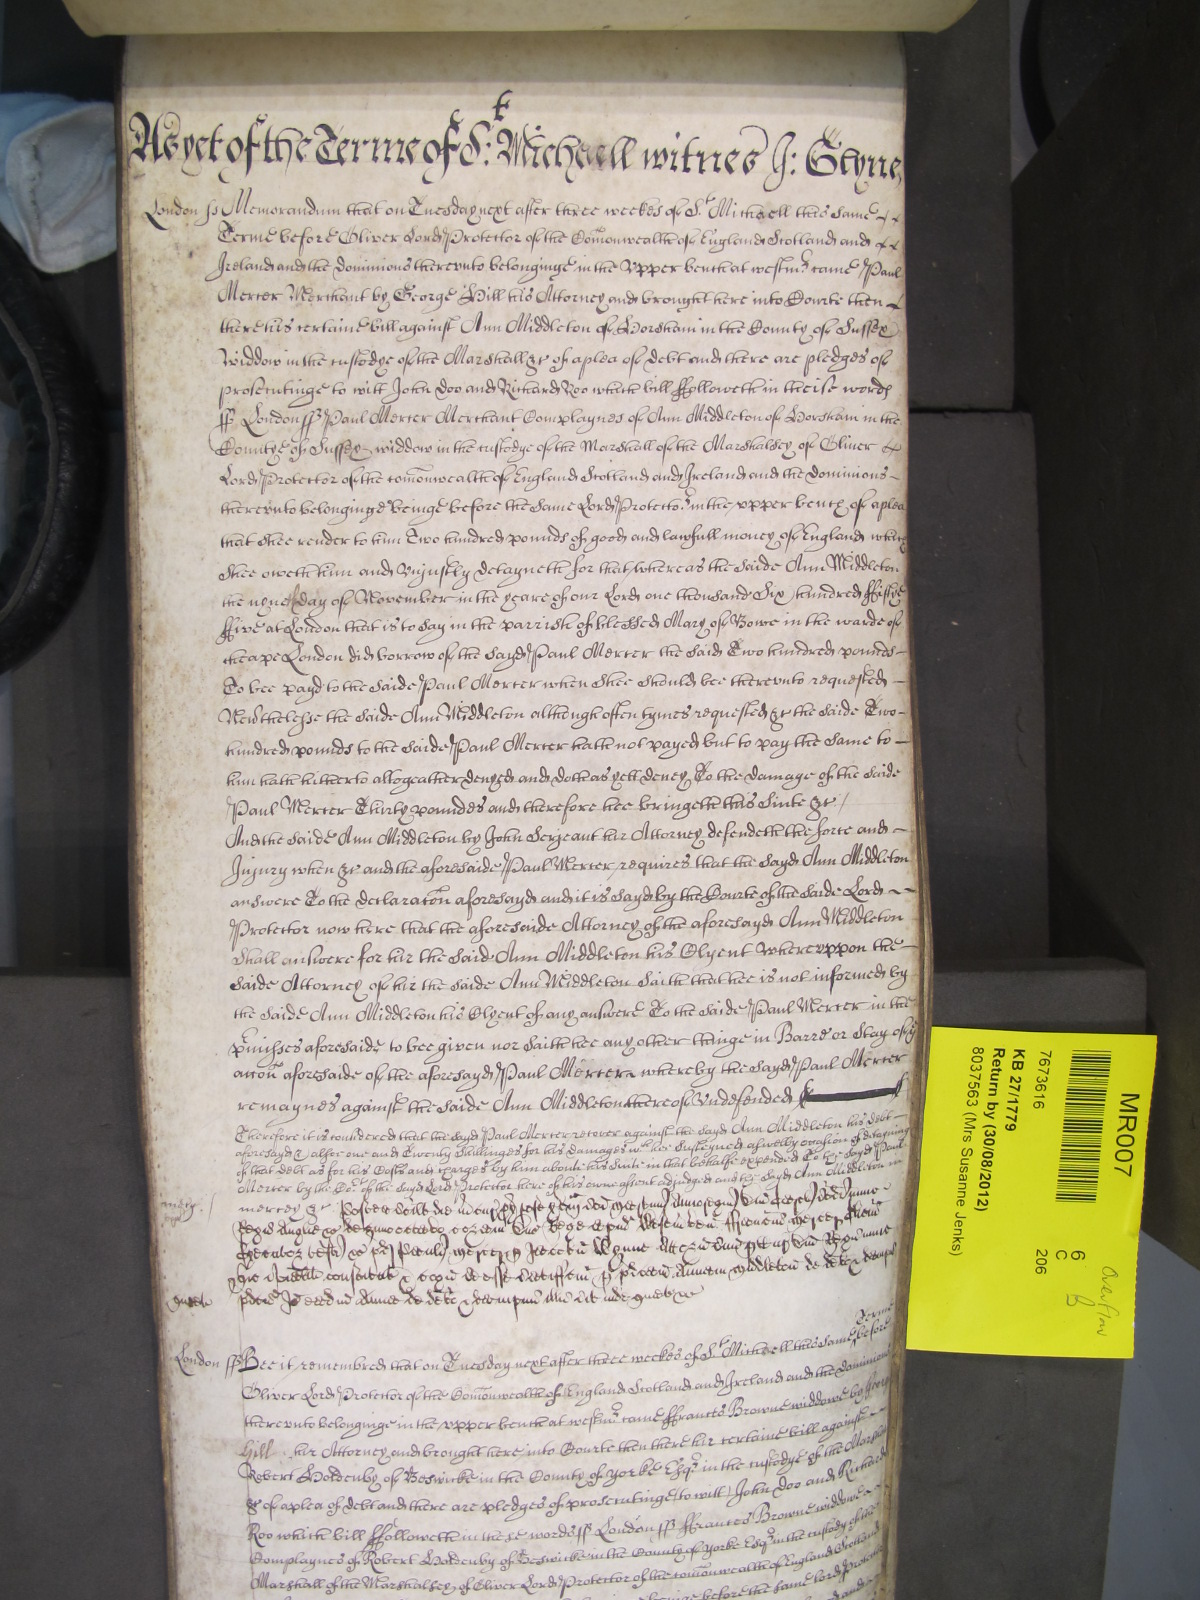 As yet of the Terme of St: Michaell witnes J: Glynne
London ss Memorandum that on Tuesday next after three weekes of St Michaell this same
Terme before Oliver Lord Protector of the Comonwealth of England Scotland and
Ireland and the Dominions thereunto belonginge in the Upper bench at westmr came Paul
Mercer Merchant by George Hill his Attorney and brought here into Courte then
there his certaine bill against Ann Middleton of Horsham in the County of Sussex
widdow in the custodye of the Marshall &c of a plea of debt and there are pledges of
prosecutinge to witt John Doo and Richard Roo which bill ffolloweth in theise words
ss London ss Paul Mercer Merchant Complaynes of Ann Middleton of Horsham in the
Countye of Sussex widdow in the custodye of the Marshall of the Marshalsey of Oliver
Lord Protector of the comonwealth of England Scotland and Ireland and the dominions
thereunto belonginge beinge before the same Lord Protector in the upper bench of a plea
that shee render to him Two hundred pounds of good and lawfull money of England which
shee oweth him and Unjustly detayneth for that whereas the saide Ann Middleton
the day of November in the yeare of our Lord one thousand Six hundred ffiftye
ffive at London that is to say in the parrish of blessed Mary of Bowe in the warde of
cheape London did borrow of the sayd Paul Mercer the said Two hundred pounds
To bee payd to the saide Paul Mercer when shee should bee thereunto requested
Neverthelesse the saide Ann Middleton although often tymes requested &c the saide Two
hundred pounds to the saide Paul Mercer hath not payed but to pay the same to
him hath hitherto altogeather denyed and doth as yett deney To the damage of the saide
Paul Mercer Thirty poundes and therefore hee bringeth this suite &c
And the saide Ann Middleton by John Serjeant her Attorney defendeth the force and
Injury when &c and the aforesaide Paul Mercer requires that the sayd Ann Middleton
answere To the declaraton aforesayd and it is sayd by the Courte of the saide Lord
Protector now here that the aforesaide Attorney of the aforesayd Ann Middleton
shall answere for her the said Ann Middleton his Clyent Whereuppon the
saide Attorney of her the saide Ann Middleton saith that hee is not informed by
the saide Ann Middleton his Clyent of any answere To the saide Paul Mercer in the
Pmisses aforesaide to bee given nor saith hee any other thinge in Barre or stay of ye
accon aforesaide of the aforesayd Paul Mercer whereby the sayd Paul Mercer
remaynes against the saide Ann Middleton thereof Undefended
Therefore it is considered that the sayd Paul Mercer recover against the sayd Ann Middleton his debt
aforesayd & alsoe one and Twenty shillinges for his damages wch hee susteyned aswell by occasion of detayning
of that debt as for his Costs and charges by him aboute his suite in that behalfe expended To the sayd Paul
Mercer by the Cort of the sayd Lord Protector here of his owne assent adjudged and the sayd Ann Middleton in
mercy &c
London ss Bee it remembred that on Tuesday next after three weekes of St Michaell this same Terme before
Oliver Lord Protector of the Comonwealth of England Scotland and Ireland and the Dominions
thereunto belonginge in the upper bench at westmr came ffrances Browne widdowe by George
Hill her Attorney and brought here into Courte then there her certaine bill against
Robert Holdenby of Beswicke in the County of Yorke Esqr in the custodye of the Marshall
&c of a plea of debt and there are pledges of prosecutinge (to witt) John Doo and Richard
Roo which bill ffolloweth in these words ss London ss ffrances Browne widdowe
Complaynes of Robert Holdenby of Beswicke in the County of Yorke Esqr in the custody of the
Marshall of the Marshalsey of Oliver Lord Protector of the comonwealth of England Scotland
before the same Lord Protector
MR007
7673616
6
C
206
KB 27/1779
Return by (30/08/2012)
8037563 (Mrs Susanne Jenks)
Overflow